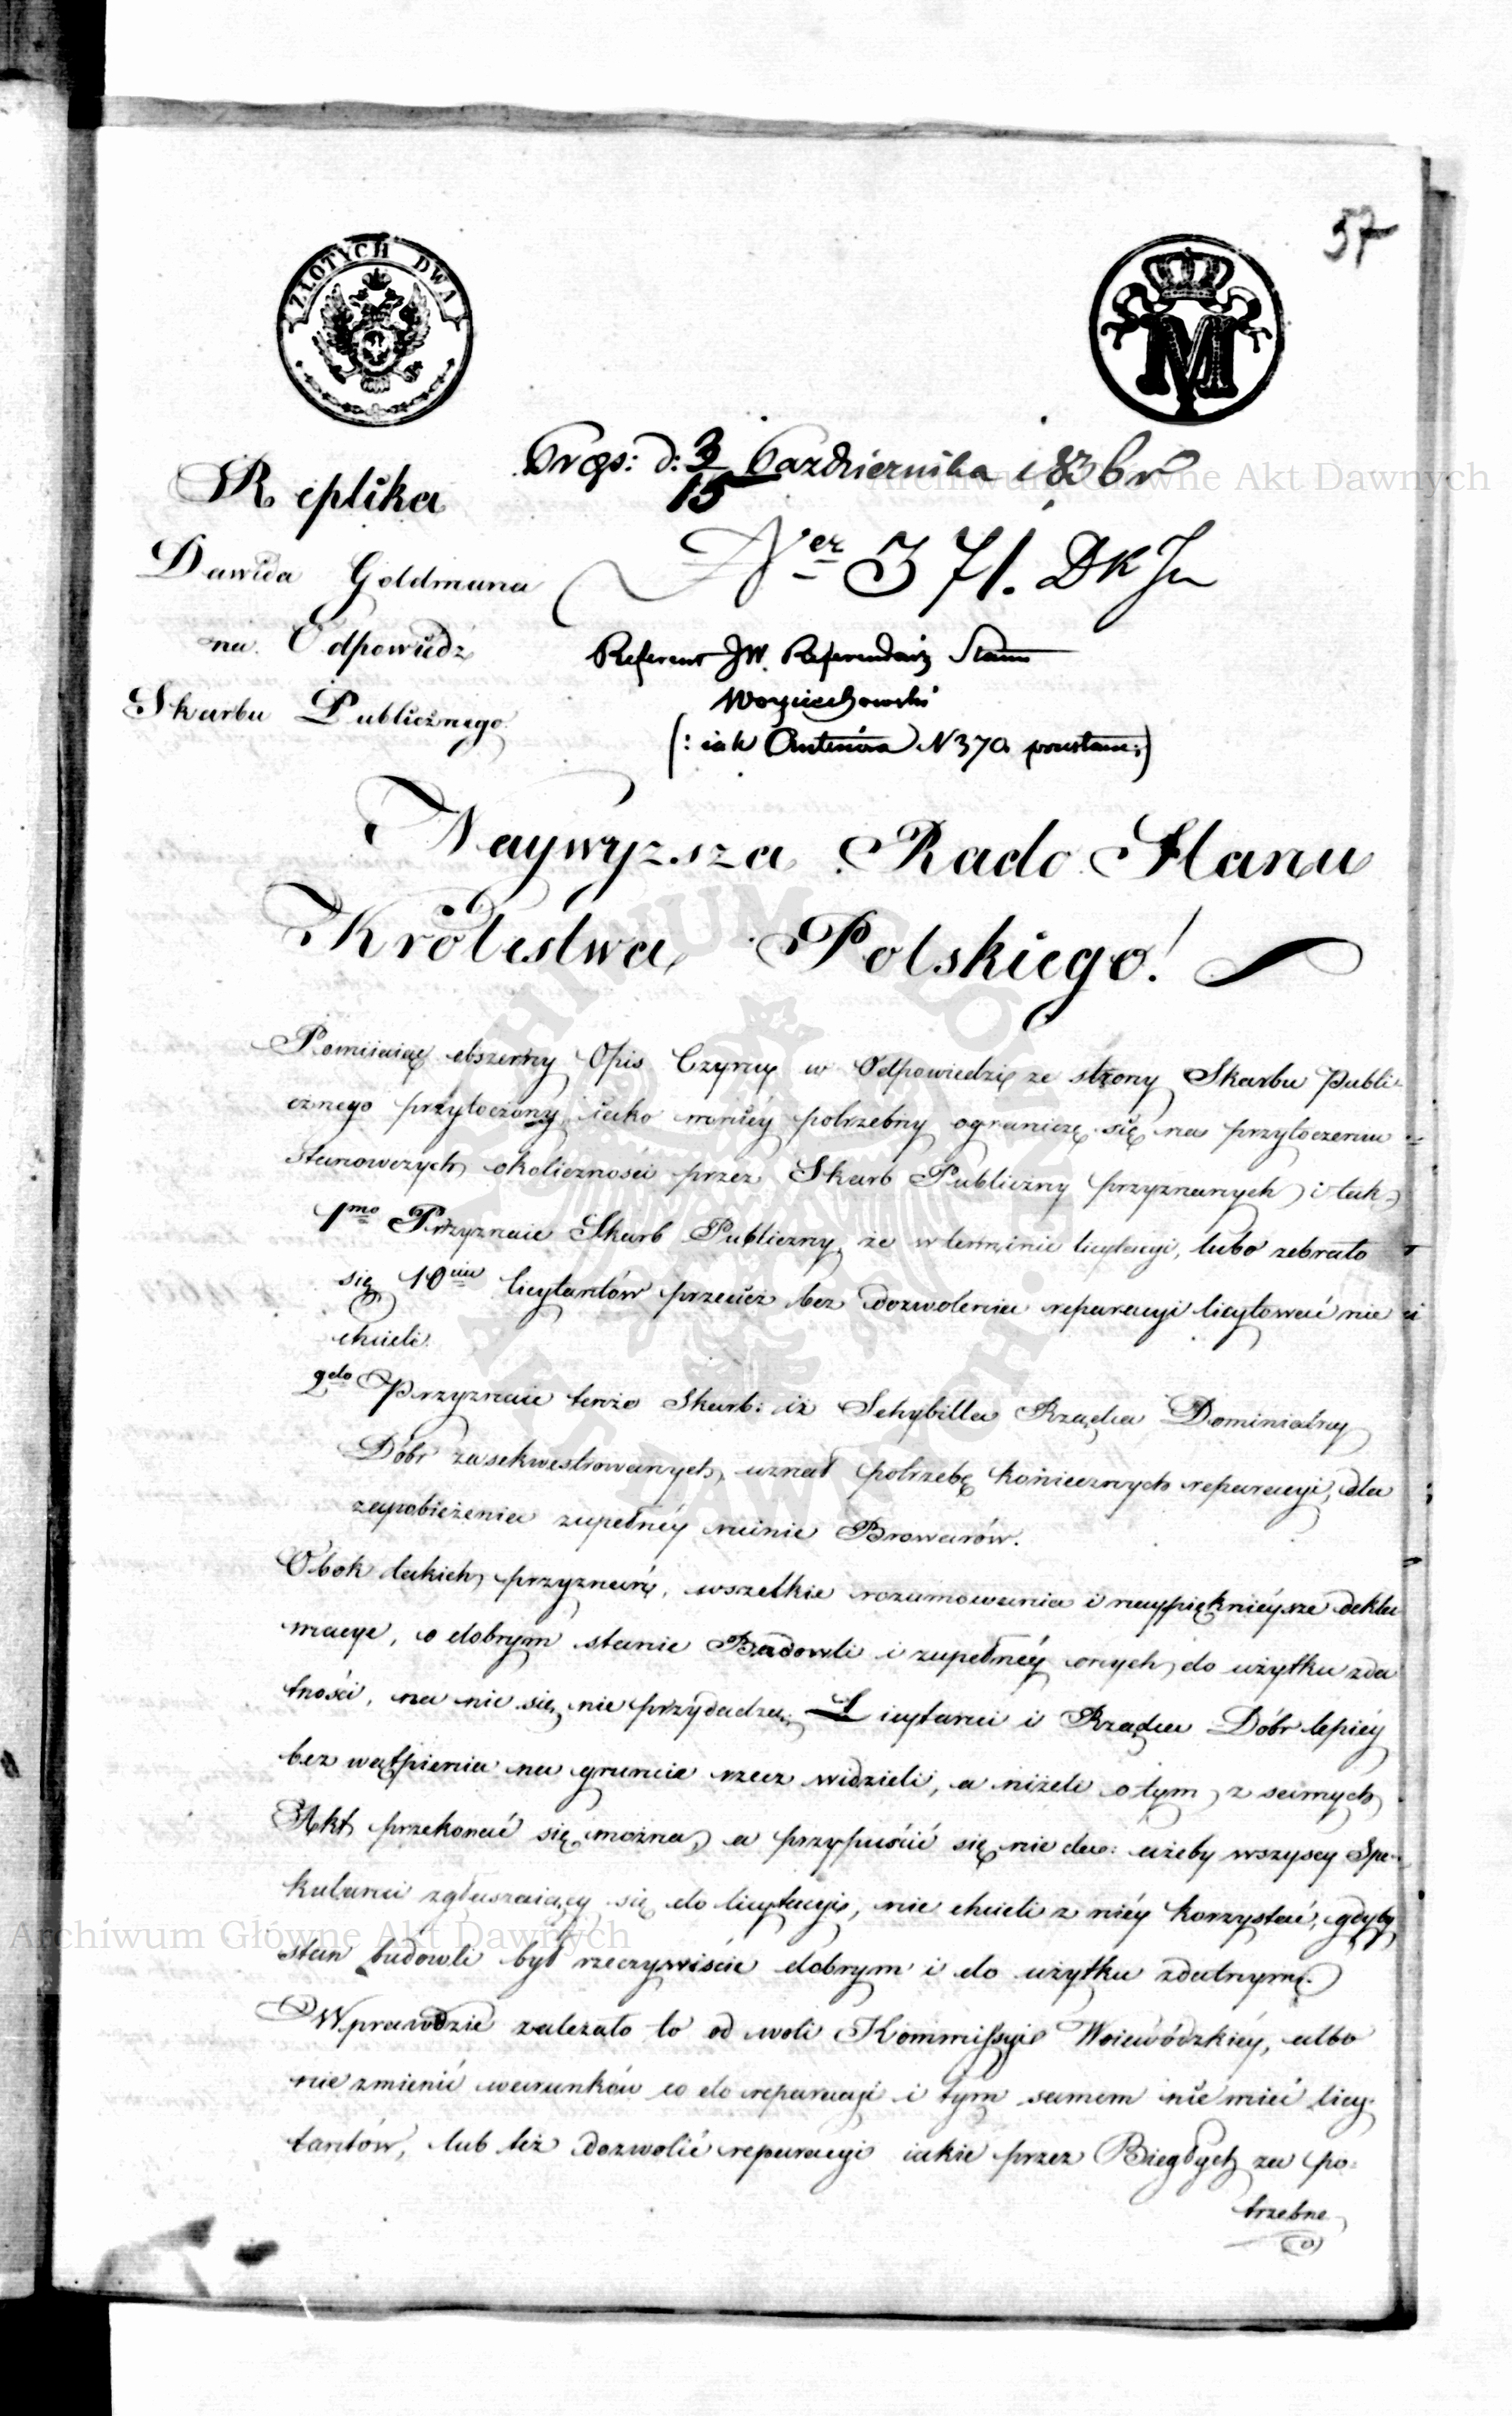 57
ZŁOTYCH DWA
M
Pręs: d: 3/15 Października 1836 r
Replika
Ner 371. DKJn
Dawida Goldmana
na Odpowiedź
Referent JW. Referendarz Stanu
Skarbu Publicznego.
Woyciechowski
(: iak N 370.
Naywyższa Rado Stanu
Królestwa Polskiego!
Pomiiaiąc obszerny Opis Czynu w Odpowiedzi ze strony Skarbu Publi-
cznego przytoczony, iako mniéy potrzebny ograniczę się na przytoczeniu
stanowczych okoliczności przez Skarb Publiczny przyznanych i tak
1mo Przyznaie Skarb Publiczny, że w terminie licytacyi, lubo zebrało
się 10ciu licytantów przecież bez dozwolenia reparacyi licytować nie
chcieli.
2do Przyznaie tenże Skarb: iż Schybilla Rządca Dominialny
Dóbr zasekwestrowanych, uznał potrzebę koniecznych reparacyi, dla
zapobieżenia zupełnéy ruinie Browarów.
Obok takich przyznań, wszelkie rozumowania i naypięknieysze dekla
macye, o dobrym stanie Budowli i zupełnéy onych do użytku zda
tności, na nic się nie przydadzą. Licytanci i Rządca Dóbr lepiéy
bez wątpienia na gruncie rzecz widzieli, a niżeli o tym z samych
Akt przekonać się można, a przypuścić się nie da: ażeby wszyscy Spe-
kulanci zgłaszaiący się do licytacyi, nie chcieli z niéy korzystać, gdyby
stan budowli był rzeczywiście dobrym i do użytku zdatnym.
Wprawdzie zależało to od woli Kommissyi Woiewódzkiéy, albo
nie zmienić warunków co do reparacyi i tym samem nie mieć licy-
tantów, lub też dozwolić reparacyi iakie przez Biegłych za po-
trzebne
Archiwum Główne Akt Dawnych
Archiwum Główne Akt Dawnych
ARCHIWUM GŁÓWNE AKT DAWNYCH